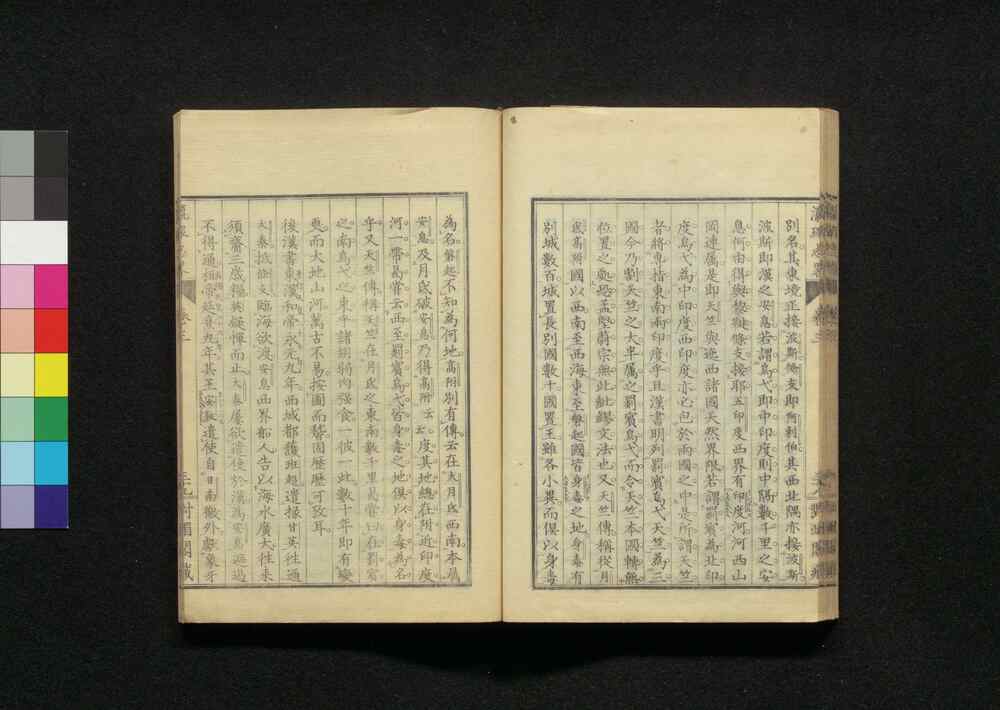 別名其東境正接波斯條支即阿剌伯其西北隅亦接波斯
波斯即漢之安息若謂烏弋即中印度則中隔數千里之安
息何由得與黎鞬條支接耶五印度西界有印度河河西山
岡連屬是即天竺與迤西諸國天然界限若謂罽賓為北印
度烏弋為中印度西印度亦已包於兩國之中是所謂天竺
者將專指東南兩印度乎且漢書明列罽賓烏弋天竺為三
國今乃割天竺之大半屬之罽賓烏弋而令天竺本國轉無
位置之處恐孟堅蔚宗無此紕繆文法也又天竺傳稱從月
氏高附國以西南至西海東至磐起國皆身毒之地身毒有
別城數百城置長別國數十國置王雖各小異而俱以身毒
為名磐起不知為何地高附別有傳云在大月氏西南本屬
安息及月氏破安息乃得高附云云度其地總在附近印度
河一帶曷嘗云西至罽賓烏弋皆身毒之地俱以身毒為名
乎又天竺傳稱天竺在月氏之東南數千里曷嘗曰在罽賓
之南烏弋之東乎諸胡弱肉强食一彼一此數十年即有變
更而大地山河萬古不易按圖而稽固歷歷可致耳
後漢書東漢和帝永元九年西域都護班超遣掾甘英往通
大秦抵條支臨海欲渡安息西界船人告以海水廣大往來
須齎三歲糧英疑憚而止大秦屢欲遣使於漢為安息遮遏
不得通桓帝延熹九年其王安敦遣使自日南徼外獻象牙